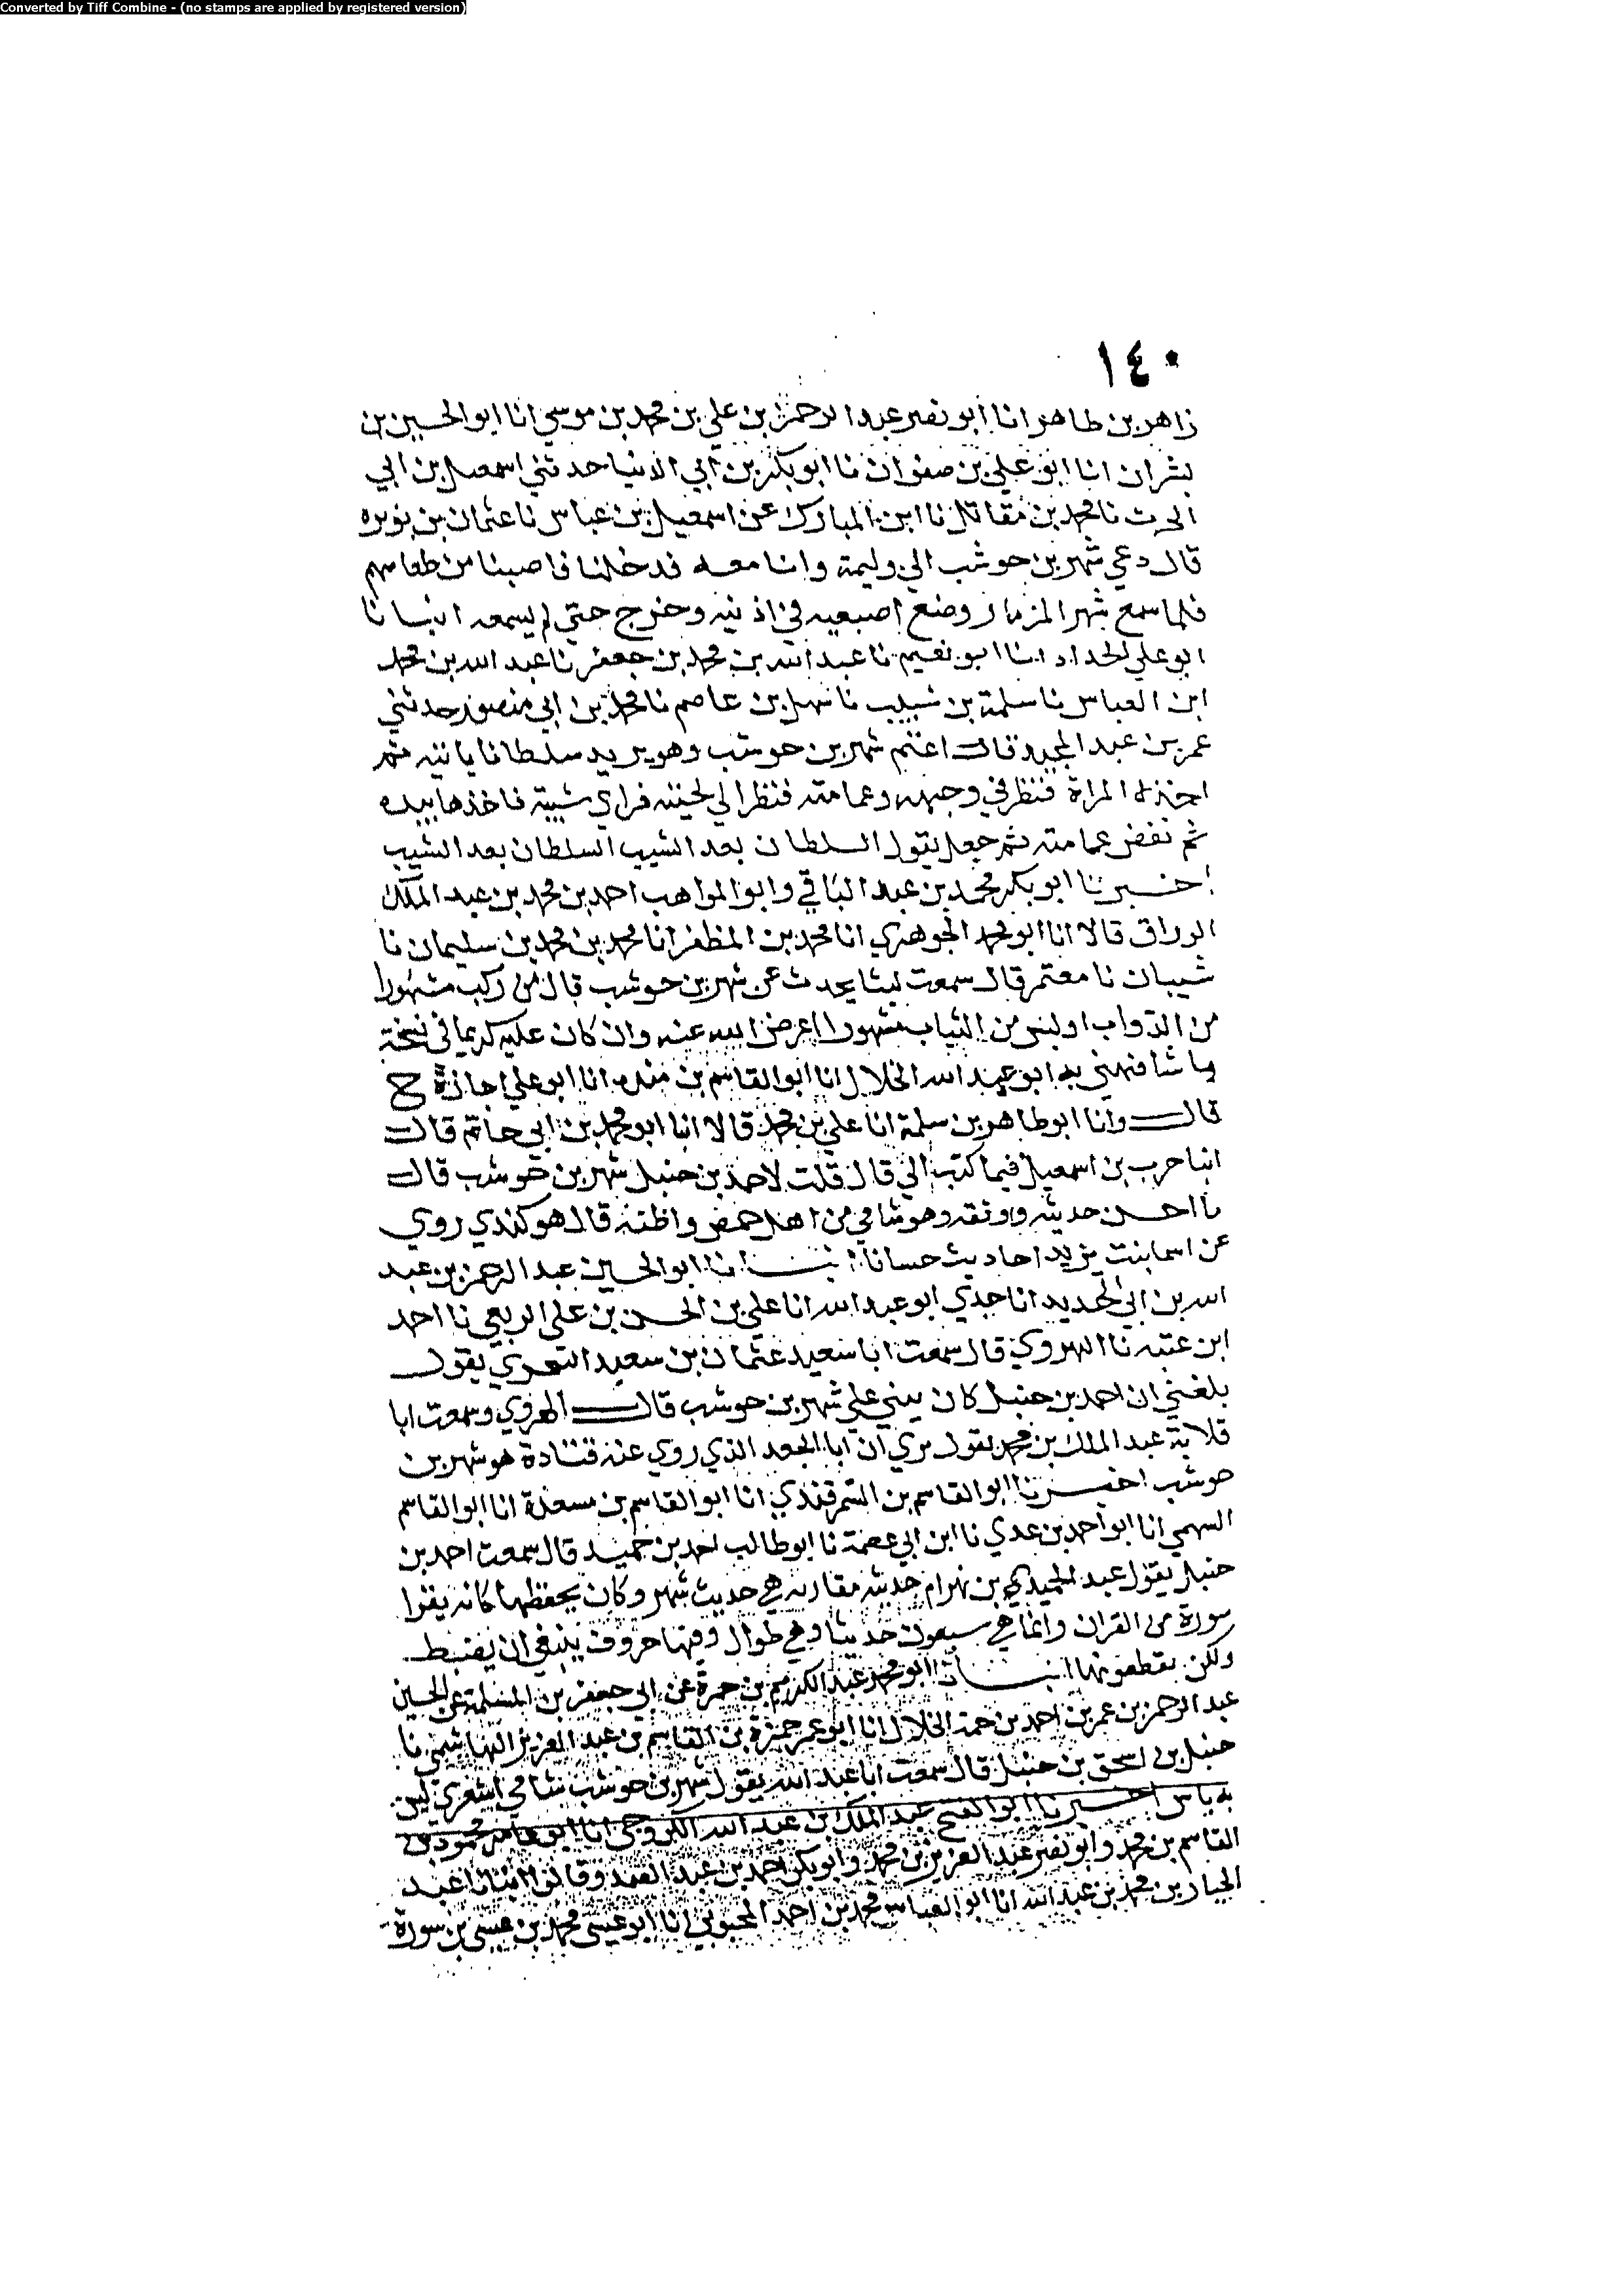 Converted by Tiff Combine - (no stamps are applied by registered version)
١٤٠
زاهر بن طاهر انا ابو نصر عبد الرحمن بن علي بن محمد بن موسي انا ابو الحسين بن
بشران انا ابو علي بن صفوان نا ابو بكر بن ابي الدنيا حدثني اسمعيل بن ابي
الحرث نا محمد بن مقاتل نا ابن المبارك عن اسمعيل بن عباس نا عثمان بن نويره
قال دعي شهر بن حوشب الي وليمة وانا معه فدخلنا فاصبنا من طعامهم
فلما سمع شهر المزمار وضع اصبعيه في اذنيه وخرج حتي لم يسمعه انبانا
ابو علي الحداد انا ابو نعيم نا عبد الله بن محمد بن جعفر نا عبد الله بن محمد
ابن العباس نا سلمة بن شبيب نا سهل بن عاصم نا محمد بن ابي منصور حدثني
عمر بن عبد المجيد قال اعتم شهر بن حوشب وهو يريد سلطانا ياتيه ثم
اخذ المراة فنظر في وجهه وعمامته فنظر الي لحيته فراي شيبة فاخذها بيده
ثم نفض عمامته ثم جعل يقول السلطان بعد الشيب السلطان بعد الشيب
اخبرنا ابو بكر محمد بن عبد الباقي وابو المواهب احمد بن محمد بن عبد الملك
الوراق قالا انا ابو محمد الجوهري انا محمد بن المظفر انا محمد بن محمد بن سليمان نا
شيبان نا معتمر قال سمعت ليثا يحدث عن شهر بن حوشب قال من ركب مشهورا
من الدواب او لبس من الثياب مشهورا اعرض الله عنه وان كان عليه كريما في نسخة
ما شافهني به ابو عبد الله الخلال انا ابو القاسم بن منده انا ابو علي اجازة ح
قال وانا ابو طاهر بن سلمة انا علي بن محمد قالا انا ابو محمد بن ابي حاتم قال
انبا حرب بن اسمعيل فيما كتب الي قال قلت لاحمد بن حنبل شهر بن حوشب قال
ما احسن حديثه ووثقه وهو شامي من اهل حمص واظنه قال هو كندي روي
عن اسما بنت يزيد احاديث حسانا انبانا ابو الحسين عبد الرحمن بن عبد
الله بن ابي الحديد انا جدي ابو عبد الله انا علي بن الحسن بن علي الربعي نا احمد
ابن عتبه نا الهروي قال سمعت ابا سعيد عثمان بن سعيد يقول
بلغني ان احمد بن حنبل كان يثني علي شهر بن حوشب قال الهروي وسمعت ابا
قلابة عبد الملك بن محمد يقول نري ان ابا الجعد الذي روي عنه قتادة هو شهر بن
حوشب اخبرنا ابو القاسم بن السمرقندي انا ابو القاسم بن مسعدة انا ابو القاسم
السهمي انا ابو احمد بن عدي نا ابن ابي عصمة نا ابو طالب احمد بن حميد قال سمعت احمد بن
حنبل يقول عبد الحميد بن بهرام حديثه مقاربه هي حديث شهر وكان يحفظها كانه يقرا
سورة من القران وانما هي سبعون حديثا وهي طوال وفيها حروف ينبغي ان يضبط
ولكن يقطعونها انبانا ابو محمد عبد الكريم بن حمزة عن ابي جعفر بن المسلمة عن ابي الحسين
عبد الرحمن بن عمر بن احمد بن حمة الخلال انا ابو عمر حمزة بن القاسم بن عبد العزيز الهاشمي نا
حنبل بن اسحق بن حنبل قال سمعت ابا عبد الله يقول شهر بن حوشب شامي اشعري ليس
به باس اخبرنا ابو الفتح عبد الملك بن عبد الله الكروخي انا ابو عامر محمود بن
القاسم بن محمد وابو نصر عبد العزيز بن محمد وابو بكر احمد بن عبد الصمد وقالوا انبانا عبد
الجبار بن محمد بن عبد الله انا ابو العباس محمد بن احمد المحبوبي انا ابو عيسي محمد بن عيسي بن سورة